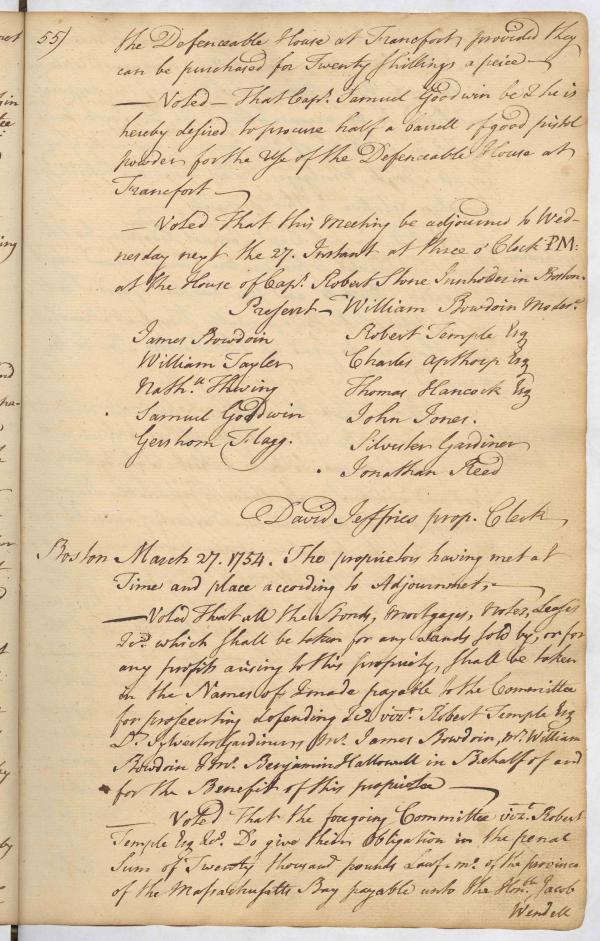 55)
the Defenceable House at Francfort, provided they
can be purchased for Twenty shillings a peice —
— Voted — That Capt. Samuel Goodwin be & he is
hereby desired to procure half a barrell of good pistol
powder for the Use of the Defenceable House at
Francfort —
— Voted That this Meeting be adjourned to Wed-
nesday next the 27. Instant at three o'Clock PM:
at the House of Capt. Robert Stone Innholder in Boston.
Present — William Bowdoin Moder.r
James Bowdoin
William Tayler
Nath.ll Thwing
Samuel Goodwin
Gershom Flagg.
Robert Temple Esq
Charles Apthorp Esq
Thomas Hancock Esq
John Jones.
Silvester Gardiner
Jonathan Reed
David Jeffries prop. Clerk
Boston March 27. 1754. The proprietors having met at
Time and place according to Adjournmet, —
— Voted That all the Bonds, Mortgages, Notes, Leases
&c.a which shall be taken for any Lands sold by, or for
any profits arising to this propriety, shall be taken
in the Names of & made payable to the Committee
for prosecuting defending &c. viz.t Robert Temple Esq
D.r Sylvester Gardiner, M.r James Bowdoin, M.r William
Bowdoin & M.r Benjamin Hallowell in Behalf of and
for the Benefit of this proprietee —
— Voted That the foregoing Committee viz.t Robert
Temple Esq &c.a Do give their Obligation in the penal
Sum of Twenty thousand pounds Lawf. m.o of the province
of the Massachusetts Bay payable unto the Hon.ble Jacob
Wendell